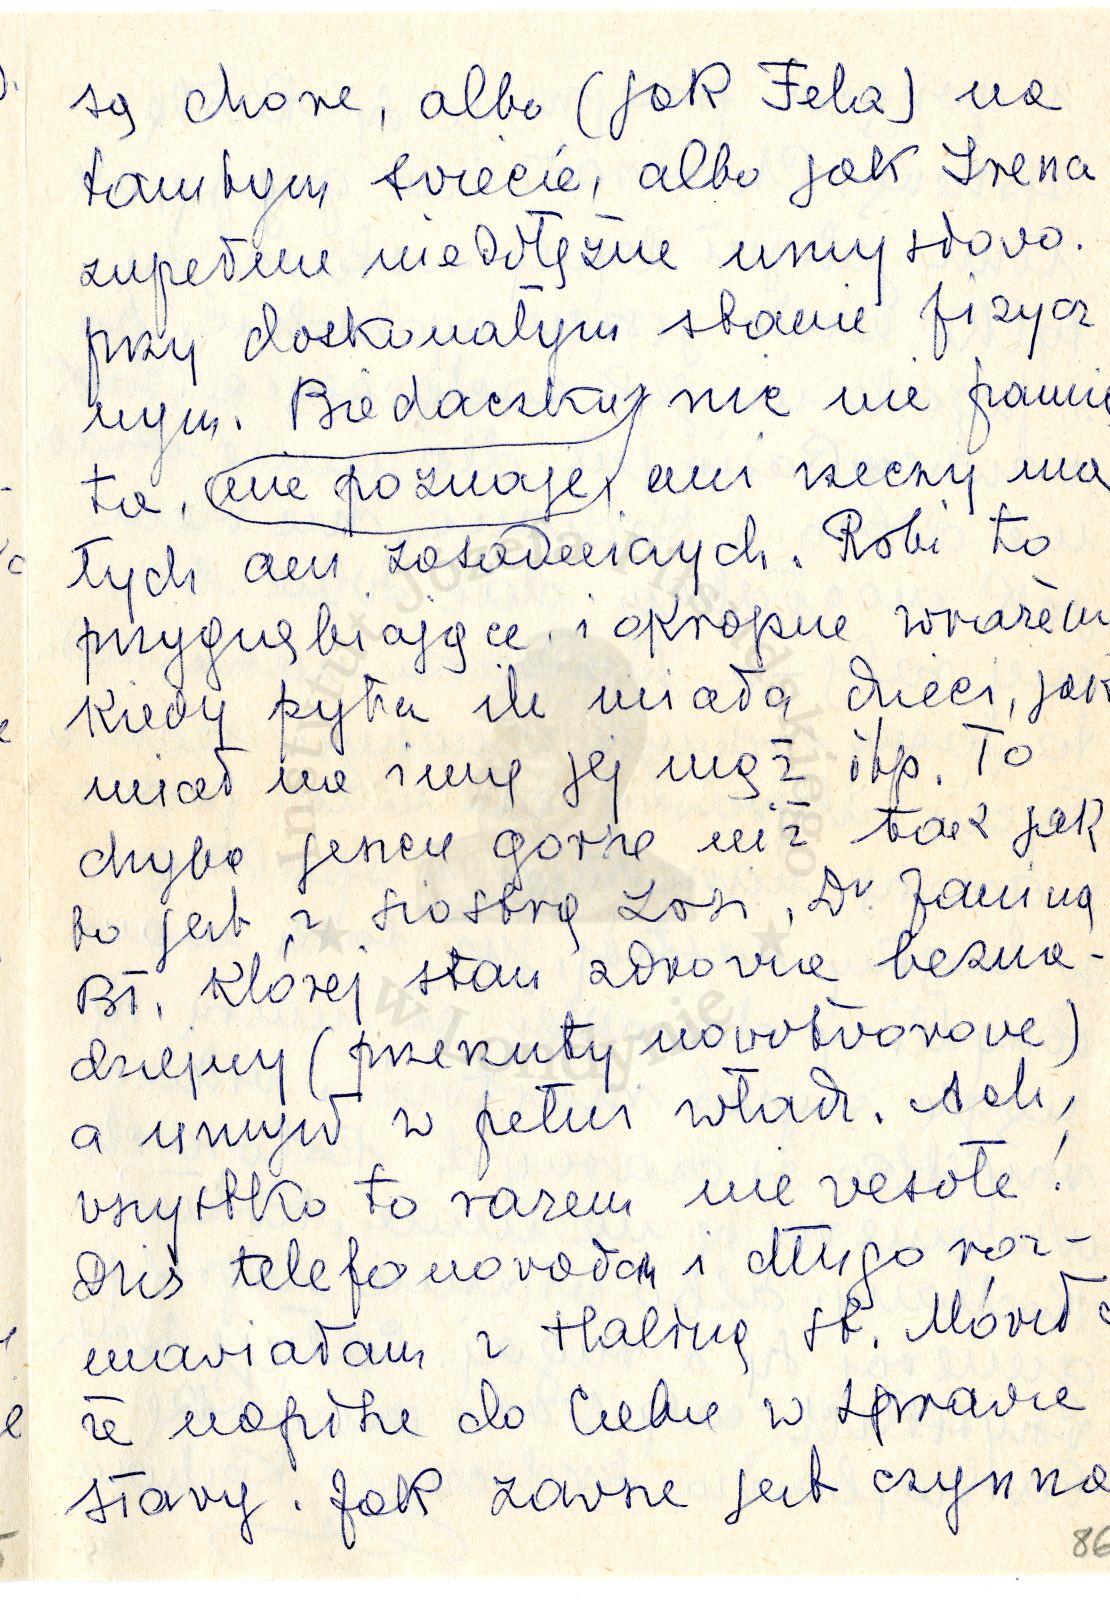 są chore, albo (jak Fela) na
tamtym świecie, albo jak Irena
zupełnie niedołężne umysłowo.
przy doskonałym stanie fizycz
nym. Biedaczka nic nie pamię
ta, nie poznaje, ani rzeczy ma
łych ani zasadniczych. Robi to
przygnębiające i okropne wrażeni
kiedy pyta ile miała dzieci, jak
miał na imię jej mąż itp. To
chyba jeszcze gorsze niż tak jak
to jest z siostrą Zosi, Dr. Janiną
Bł. której stan zdrowia bezna-
dziejny (przerzuty nowotworowe)
a umysł w pełni władz. Ach,
wszystko to razem nie wesołe!
Dziś telefonowałam i długo roz-
mawiałam z Haliną St. Mówiła
że napisze do Ciebie w sprawie
sławy. Jak zawsze jest czynna
86
Instytut Józefa Piłsudskiego
★ w Londynie ★